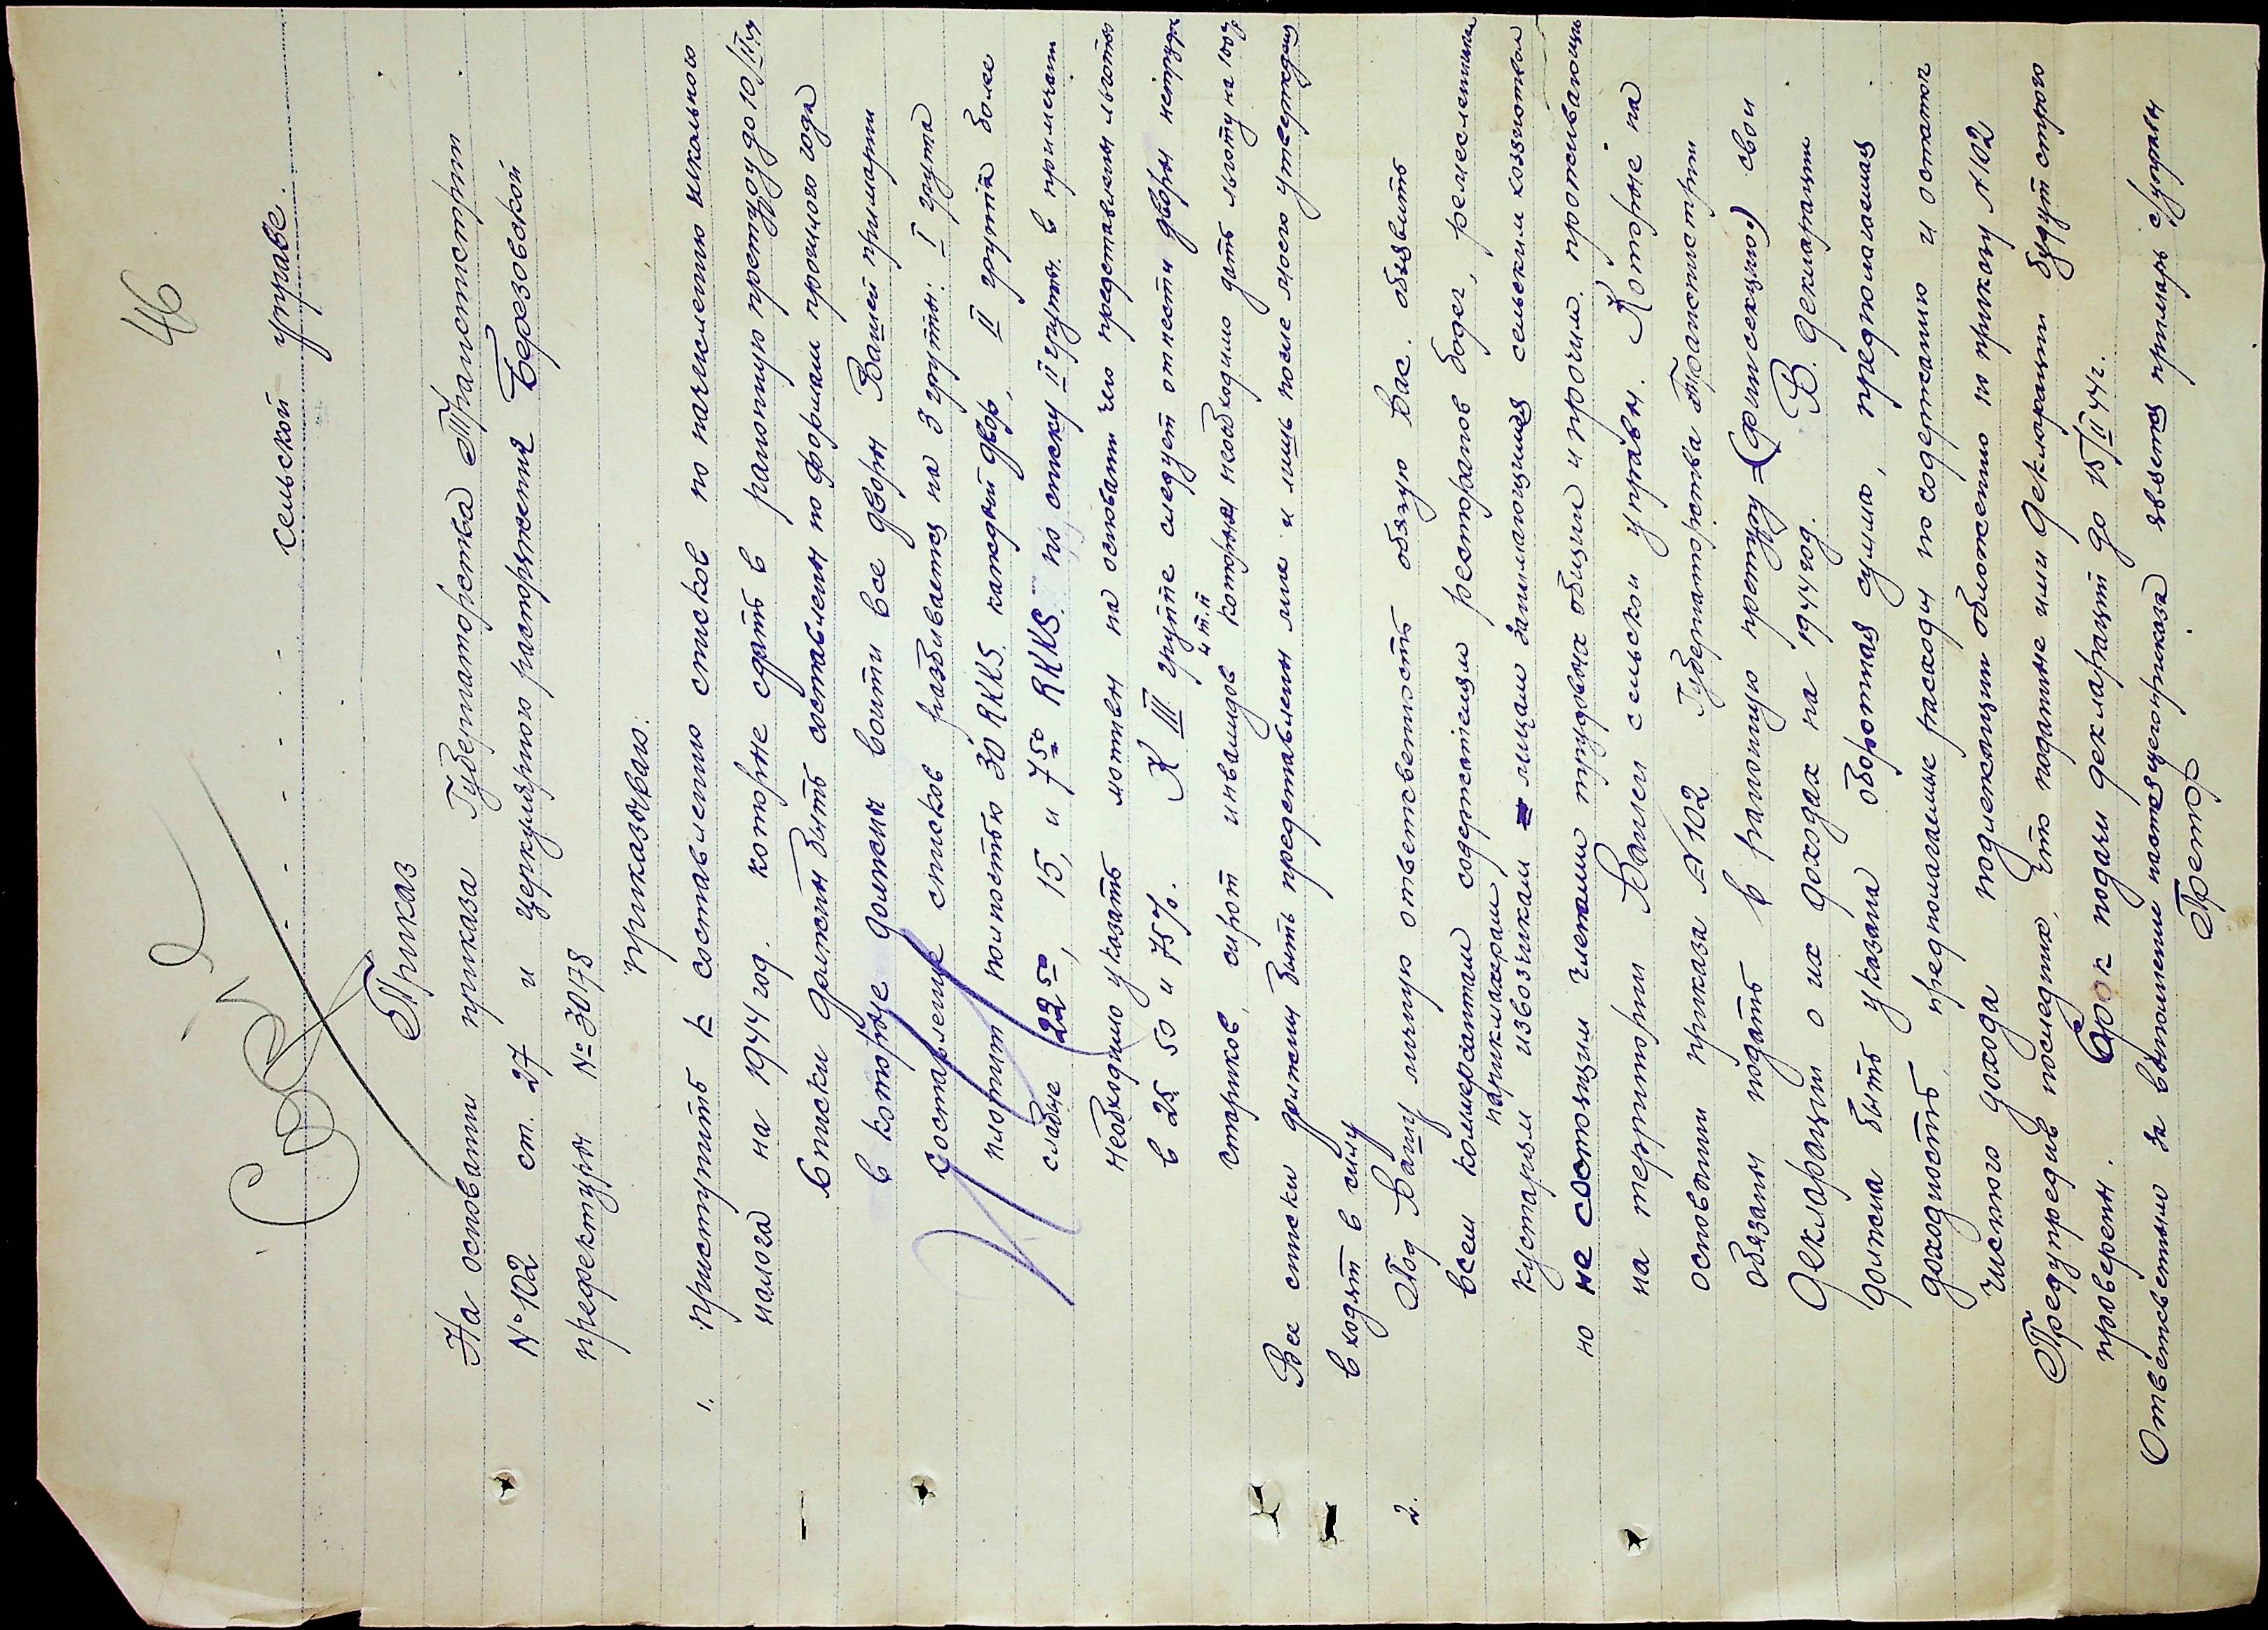 46
сельской управе.
Приказ
На основании приказа Губернаторства Транснистрии
№ 102 ст. 27 и церкулярного распоряжения Березовской
префектуры № 30178
приказываю:
1. приступить к составлению списков по начислению школьного
налога на 1944 год. которые сдать в районную претуру до 10/II 44
Списки должны быть составлены по формам прошлого года
в которые должны войти все дворы Вашей примарии
Составление списков разбивается на 3 группы: I группа
плотит полностью 30 RKKS. каждый двор, II группа более
слабые 22 50, 15, и 7 50 RKKS. по списку II группы в примечании
необходимо указать мотивы на основании чего предоставлены льготы
в 25 50 и 75%. К III группе следует отнести дворы нетруд.
и т.п
стариков, сирот инвалидов которым необходимо дать льготу на 100%
Все списки должны быть представлены мне и лишь после моего утверждения
входят в силу
2. Под Вашу личную ответсвенность обязую Вас. объявить
всем коммерсантам содержателям ресторанов бодег, ремесленикам
парикмахерам
кустарям извозчикам лицам занимающимся сельским хозяйством
но не состоящим членами трудовых общин и прочим. проживающим
на территории Вашей сельской управы. Которые на
основании приказа № 102 Губернаторства Транснистрии
обязаны подать в районную претуру (финсекцию) свои
Декларации о их доходах на 1944 год. В декларации
должна быть указана оборотная сумма, предполагаемая
доходность, предполагаемые расходы по содержанию и остаток
чистого дохода подлежащий обложению по приказу № 102
Предупредив последних, что поданные ими декларации будут строго
проверены. Срок подачи деклараций до 15/II 44 г.
Ответсвенным за выполнение настоящего приказа является примарь с/управы
Претор